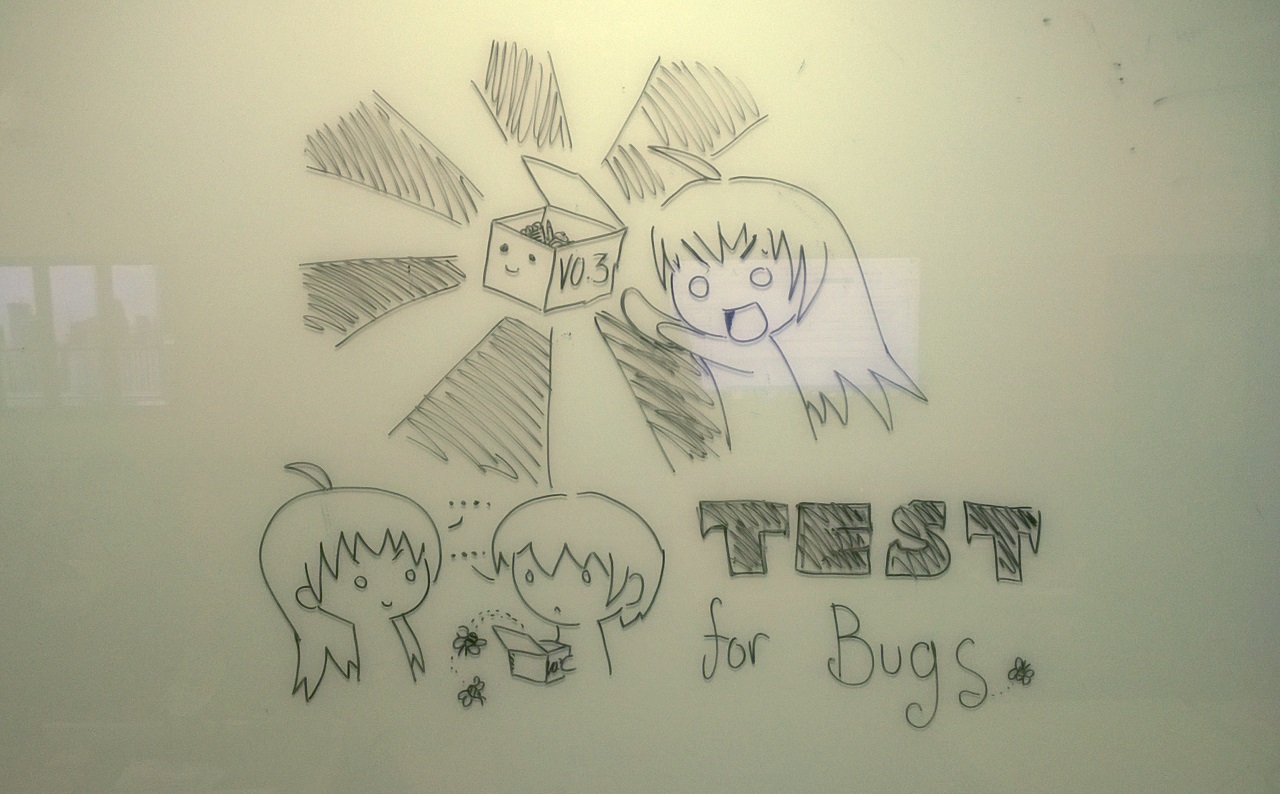 V0.3
....
....
TEST
for Bugs